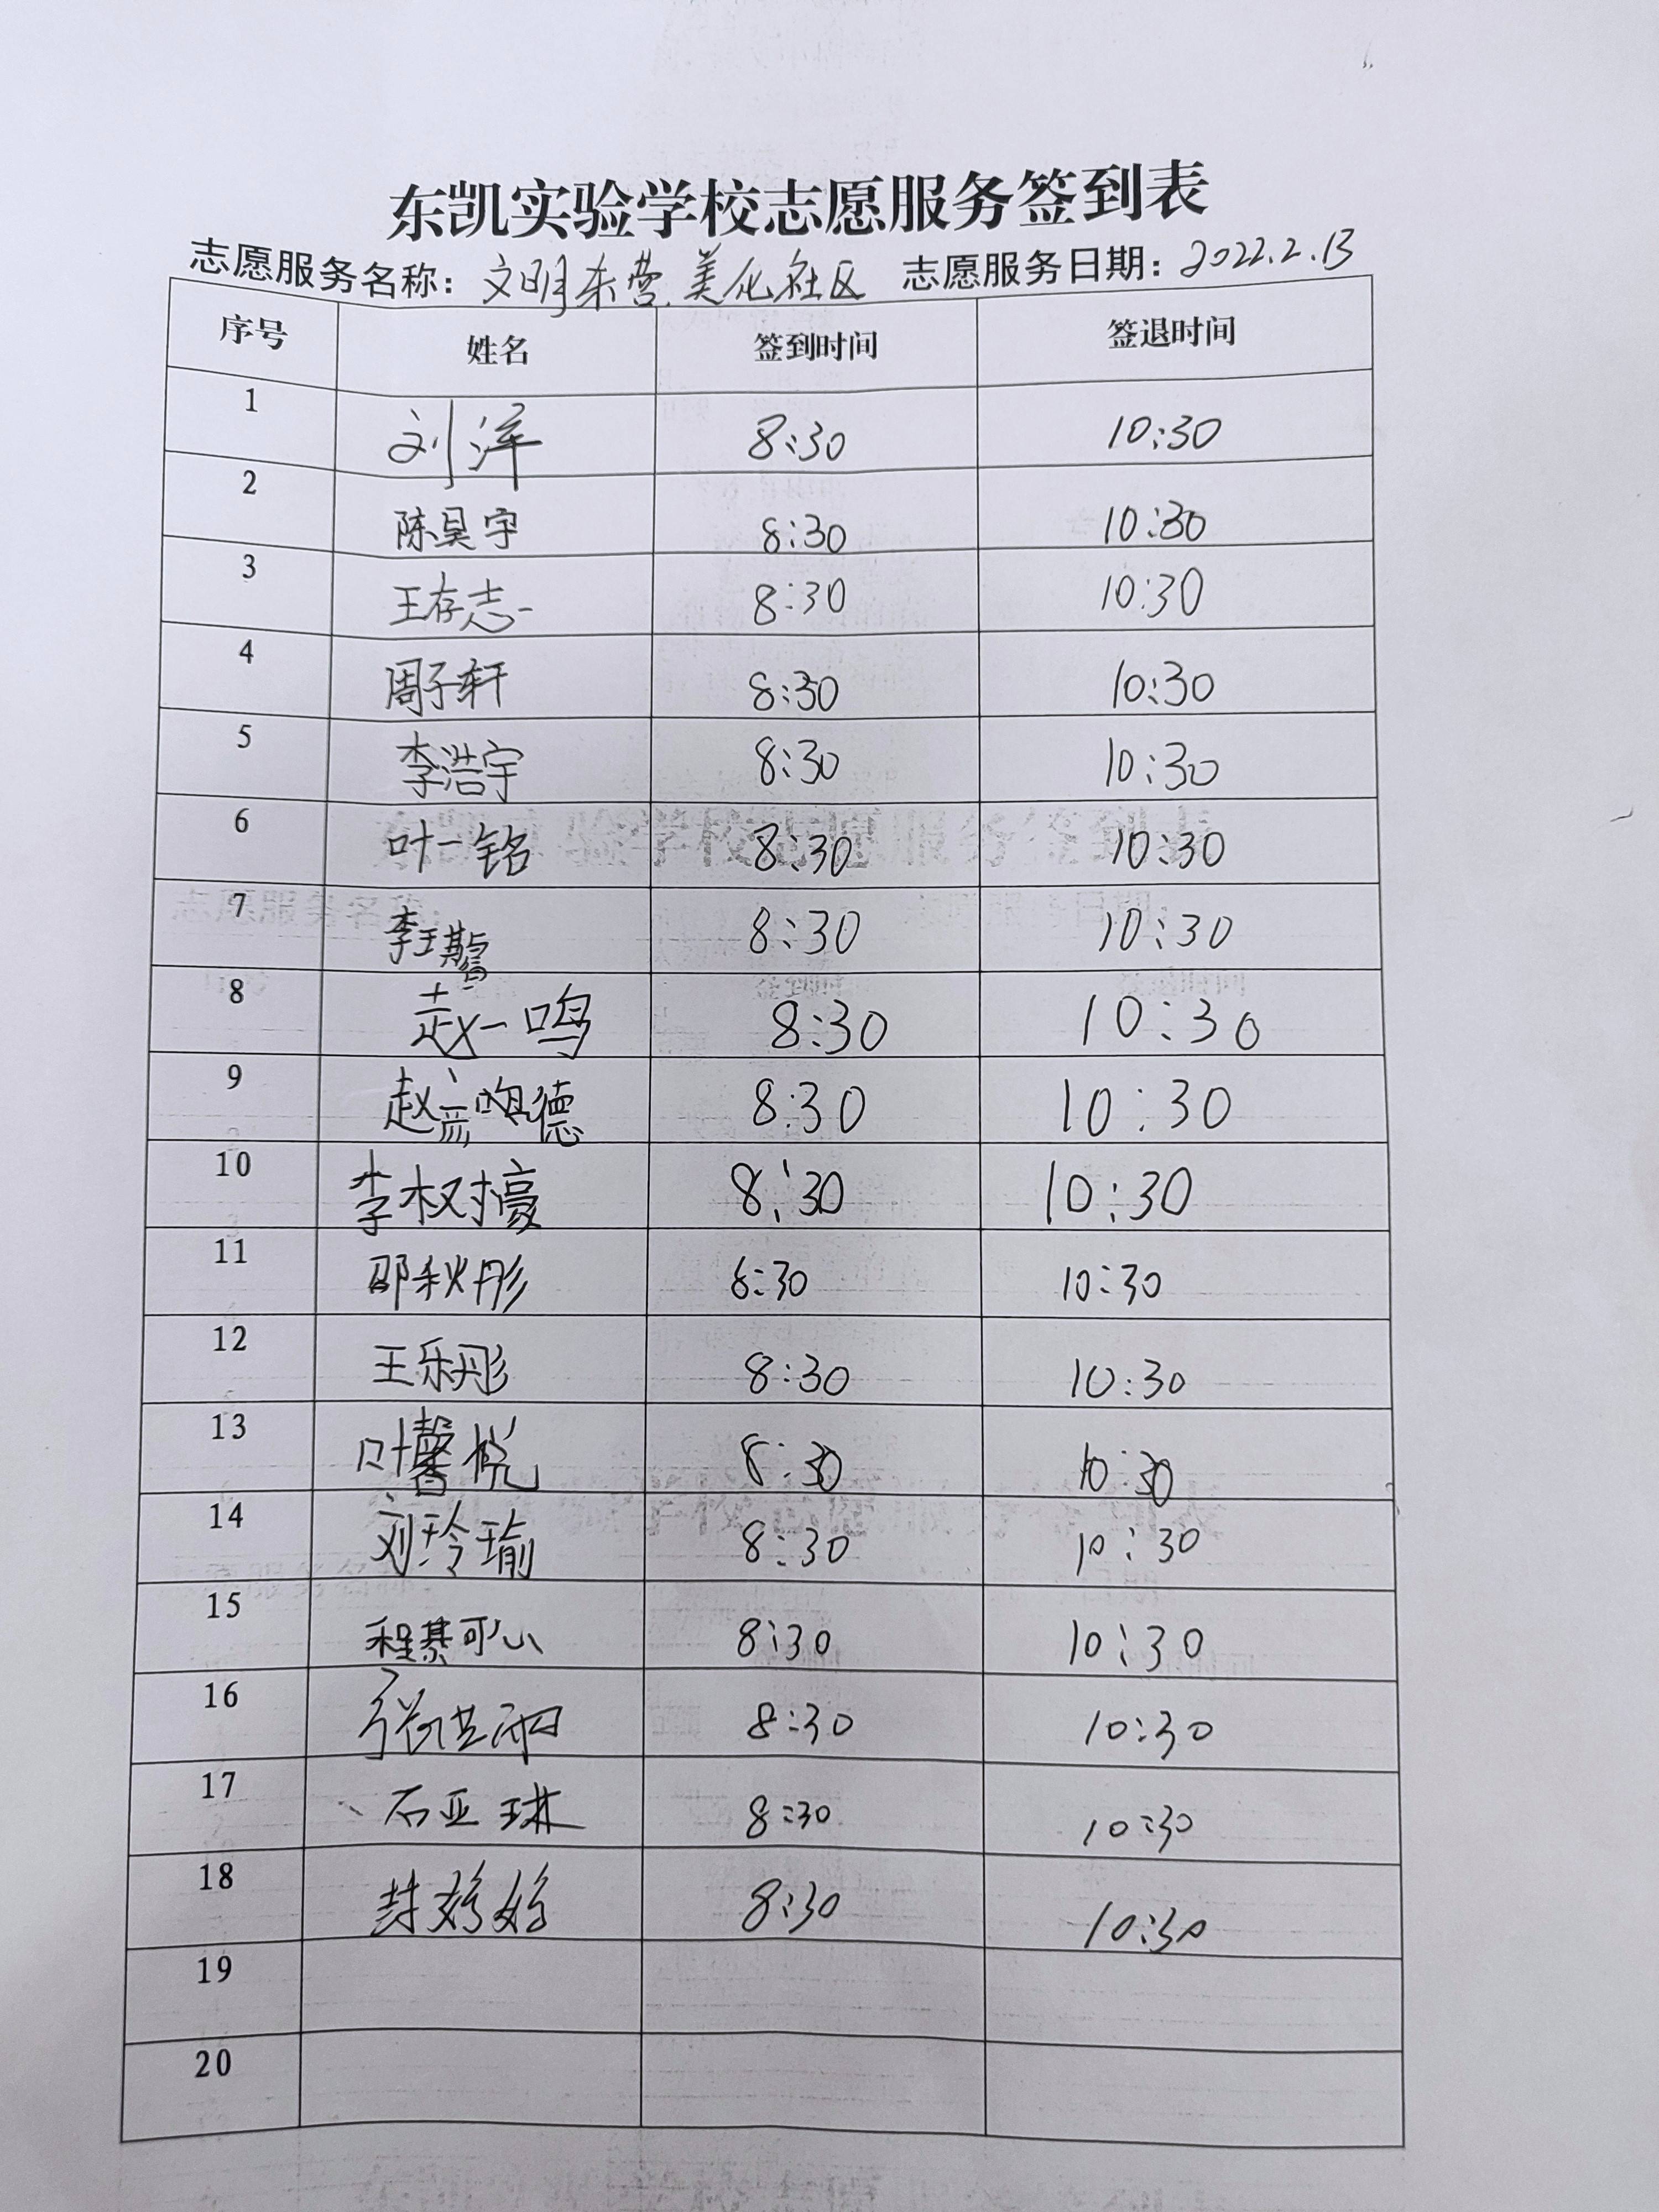 东凯实验学校志愿服务签到表
志愿服务名称：文明东营.美化社区 志愿服务日期：2022.2.13
序号 姓名 签到时间 签退时间
1 刘洋 8:30 10:30
2 陈昊宇 8:30 10:30
3 王存志 8:30 10:30
4 周子轩 8:30 10:30
5 李浩宇 8:30 10:30
6 叶一铭 8:30 10:30
7 李 8:30 10:30
8 赵一鸣 8:30 10:30
9 赵彦 德 8:30 10:30
10 李权 8:30 10:30
11 邵秋彤 8:30 10:30
12 王乐彤 8:30 10:30
13 叶馨悦 8:30 10:30
14 刘玲瑜 8:30 10:30
15 程綦可心 8:30 10:30
16 张 8:30 10:30
17 石亚琳 8:30 10:30
18 8:30 10:30
19
20